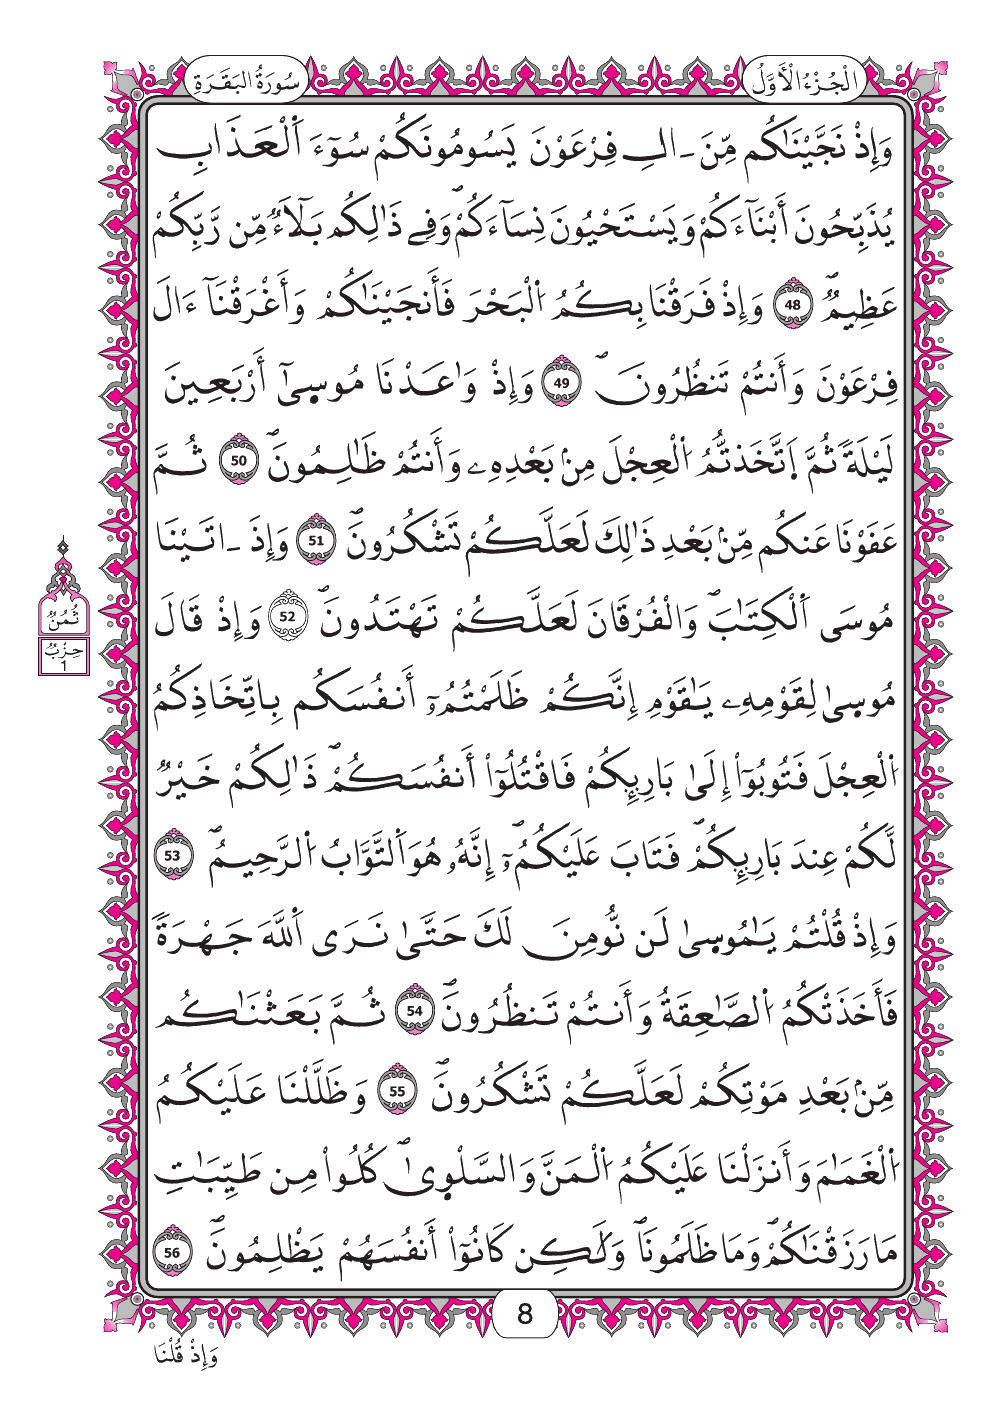 سُورَةُ الْبَقَرَةِ
الْجُزْءُ الْأَوَّلُ
وَإِذْ نَجَّيْنَٰكُم مِّنَ ـَالِ فِرْعَوْنَ يَسُومُونَكُمْ سُوٓءَ اَ۬لْعَذَابِ
يُذَبِّحُونَ أَبْنَآءَكُمْ وَيَسْتَحْيُونَ نِسَآءَكُمْۖ وَفِے ذَٰلِكُم بَلَآءٌ مِّن رَّبِّكُمْ
عَظِيمٌۖ 48 وَإِذْ فَرَقْنَا بِكُمُ اُ۬لْبَحْرَ فَأَنجَيْنَٰكُمْ وَأَغْرَقْنَآ ءَالَ
فِرْعَوْنَ وَأَنتُمْ تَنظُرُونَۖ 49 وَإِذْ وَٰعَدْنَا مُوس۪ىٰٓ أَرْبَعِينَ
لَيْلَةً ثُمَّ اَ۪تَّخَذتُّمُ اُ۬لْعِجْلَ مِنۢ بَعْدِهِۦ وَأَنتُمْ ظَٰلِمُونَۖ 50 ثُمَّ
عَفَوْنَا عَنكُم مِّنۢ بَعْدِ ذَٰلِكَ لَعَلَّكُمْ تَشْكُرُونَۖ 51 وَإِذَ ـاتَيْنَا
مُوسَى اَ۬لْكِتَٰبَۖ وَالْفُرْقَانَ لَعَلَّكُمْ تَهْتَدُونَۖ 52 وَإِذْ قَالَ
مُوس۪ىٰ لِقَوْمِهِۦ يَٰقَوْمِ إِنَّكُمْ ظَلَمْتُمُۥٓ أَنفُسَكُم بِاتِّخَاذِكُمُ
اُ۬لْعِجْلَ فَتُوبُوٓاْ إِلَىٰ بَارِئِكُمْ فَاقْتُلُوٓاْ أَنفُسَكُمْۖ ذَٰلِكُمْ خَيْرٌ
لَّكُمْ عِندَ بَارِئِكُمْۖ فَتَابَ عَلَيْكُمُۥٓۖ إِنَّهُۥ هُوَ اَ۬لتَّوَّابُ اُ۬لرَّحِيمُۖ 53
وَإِذْ قُلْتُمْ يَٰمُوس۪ىٰ لَن نُّومِنَ لَكَ حَتَّىٰ نَرَى اَ۬للَّهَ جَهْرَةً
فَأَخَذَتْكُمُ اُ۬لصَّٰعِقَةُ وَأَنتُمْ تَنظُرُونَۖ 54 ثُمَّ بَعَثْنَٰكُم
مِّنۢ بَعْدِ مَوْتِكُمْ لَعَلَّكُمْ تَشْكُرُونَۖ 55 وَظَلَّلْنَا عَلَيْكُمُ
اُ۬لْغَمَٰمَ وَأَنزَلْنَا عَلَيْكُمُ اُ۬لْمَنَّ وَالسَّلْو۪ىٰۖ كُلُواْ مِن طَيِّبَٰتِ
مَا رَزَقْنَٰكُمْۖ وَمَا ظَلَمُونَاۖ وَلَٰكِن كَانُوٓاْ أَنفُسَهُمْ يَظْلِمُونَۖ 56
ثُمُنُ
حِزْبُ
1
8
وَإِذْ قُلْنَا